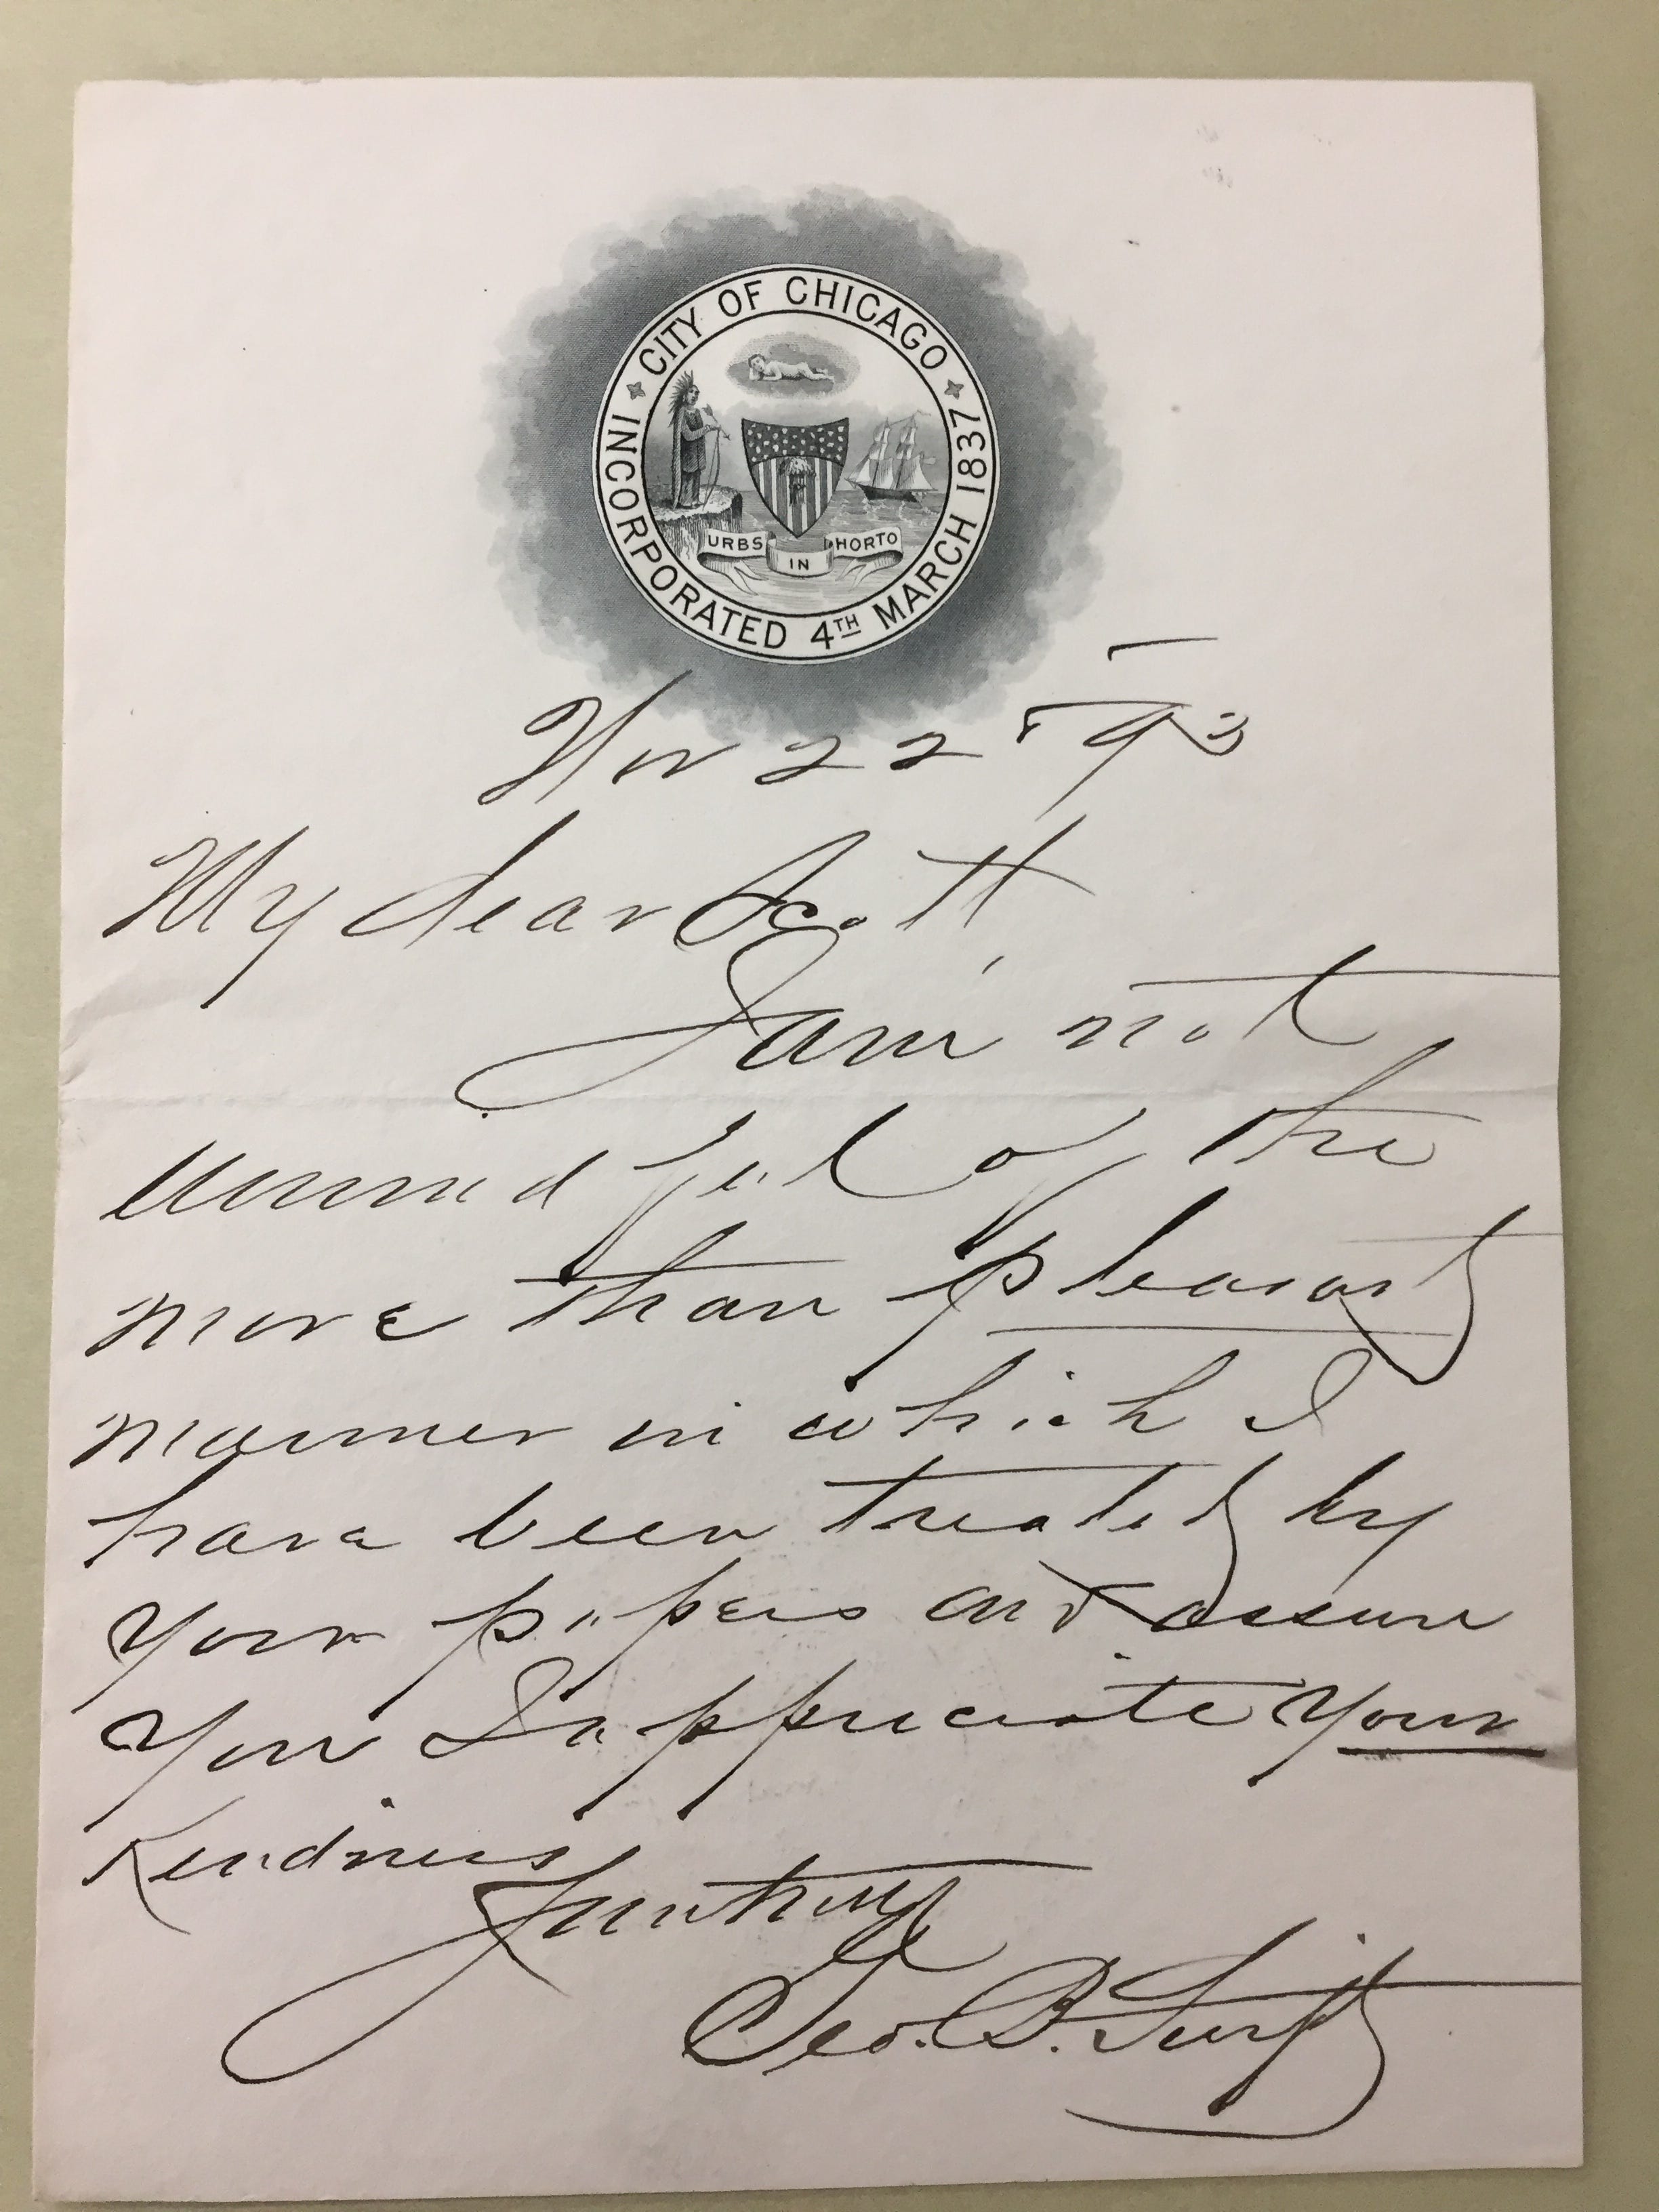 CITY OF CHICAGO
INCORPORATED 4TH MARCH 1837
URBS IN HORTO
Nov 22 - 93
My dear Scott,
I am not
unmindful of the
more than pleasant
manner in which I
have been treated by
your papers and assure
you I appreciate your
Kindness
Truthfully
Geo. B. Swift